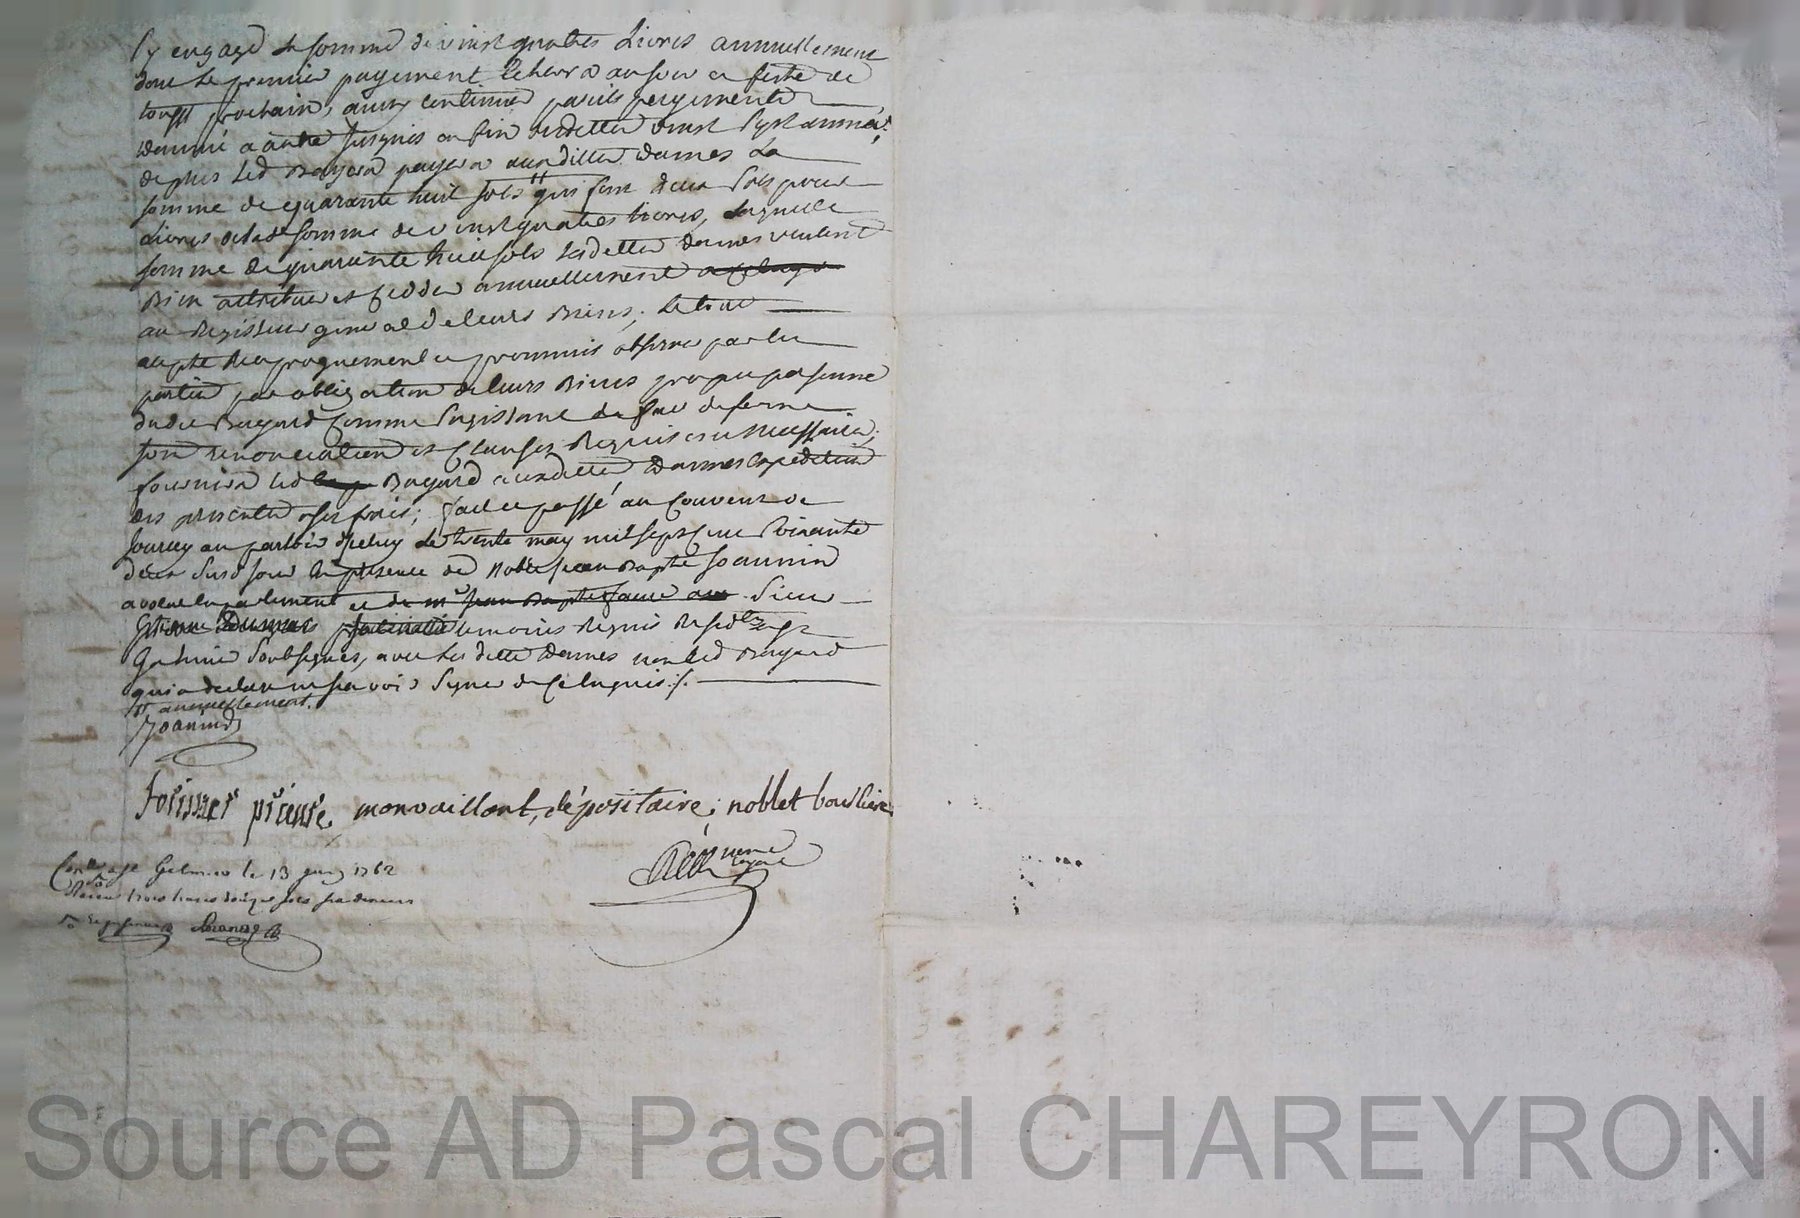 s'y engage de somme de vinst quattes Livres annuellement
dont le premier payement Echerra au jour et feste de
tousst prochain, ainsy continuer pareils payements
danné a autre jusques en fin desdittes vinst sept années
de plus led Bayard payera auxdittes dames La
somme de quarante huit sols # qui font deux sols pour
Livres de lade somme de vinst quattes livres, Laquelle
somme de quarante huit sols lesdittes dames veulent
Bien attribuer et Cedder annuellement
au Regisseur general de leurs Biens, le tout
acepté Reciproquement et prommis observer par les
parties par obligation de leurs Biens propre personne
dudit Bayard Comme s'agissant de fait de ferme
son renonciation et Clauses Requises et necessaires,
fournira led Bayard auxdittes dames Expedition
des presentes a ses frais; fait et passé au Couvent de
Jourcey au parloir d'iceluy le trente may mil sept Cent soixante
deux susd jour En presence de Noble jean Bapte Joannin
avocat En parlement et de mr jean Bapte faure Sieur
temoins Requis Residts a st
Galmier Soubsignés, avec les dittes dames non led Bayard
qui a declaré ne sçavoir signer de Ce Enquis ./.
# annuellement.
Joannin
prieure, monvaillant, dépositaire, noblet boursiere
Conllé a st Galmier le 13 juin 1762
Reçeu trois livres douze sols six deniers